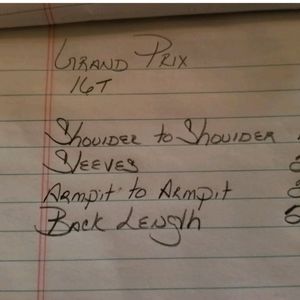 Grand Prix
16T
Shoulder to Shoulder
Sleeves
Armpit to Armpit
Back Length